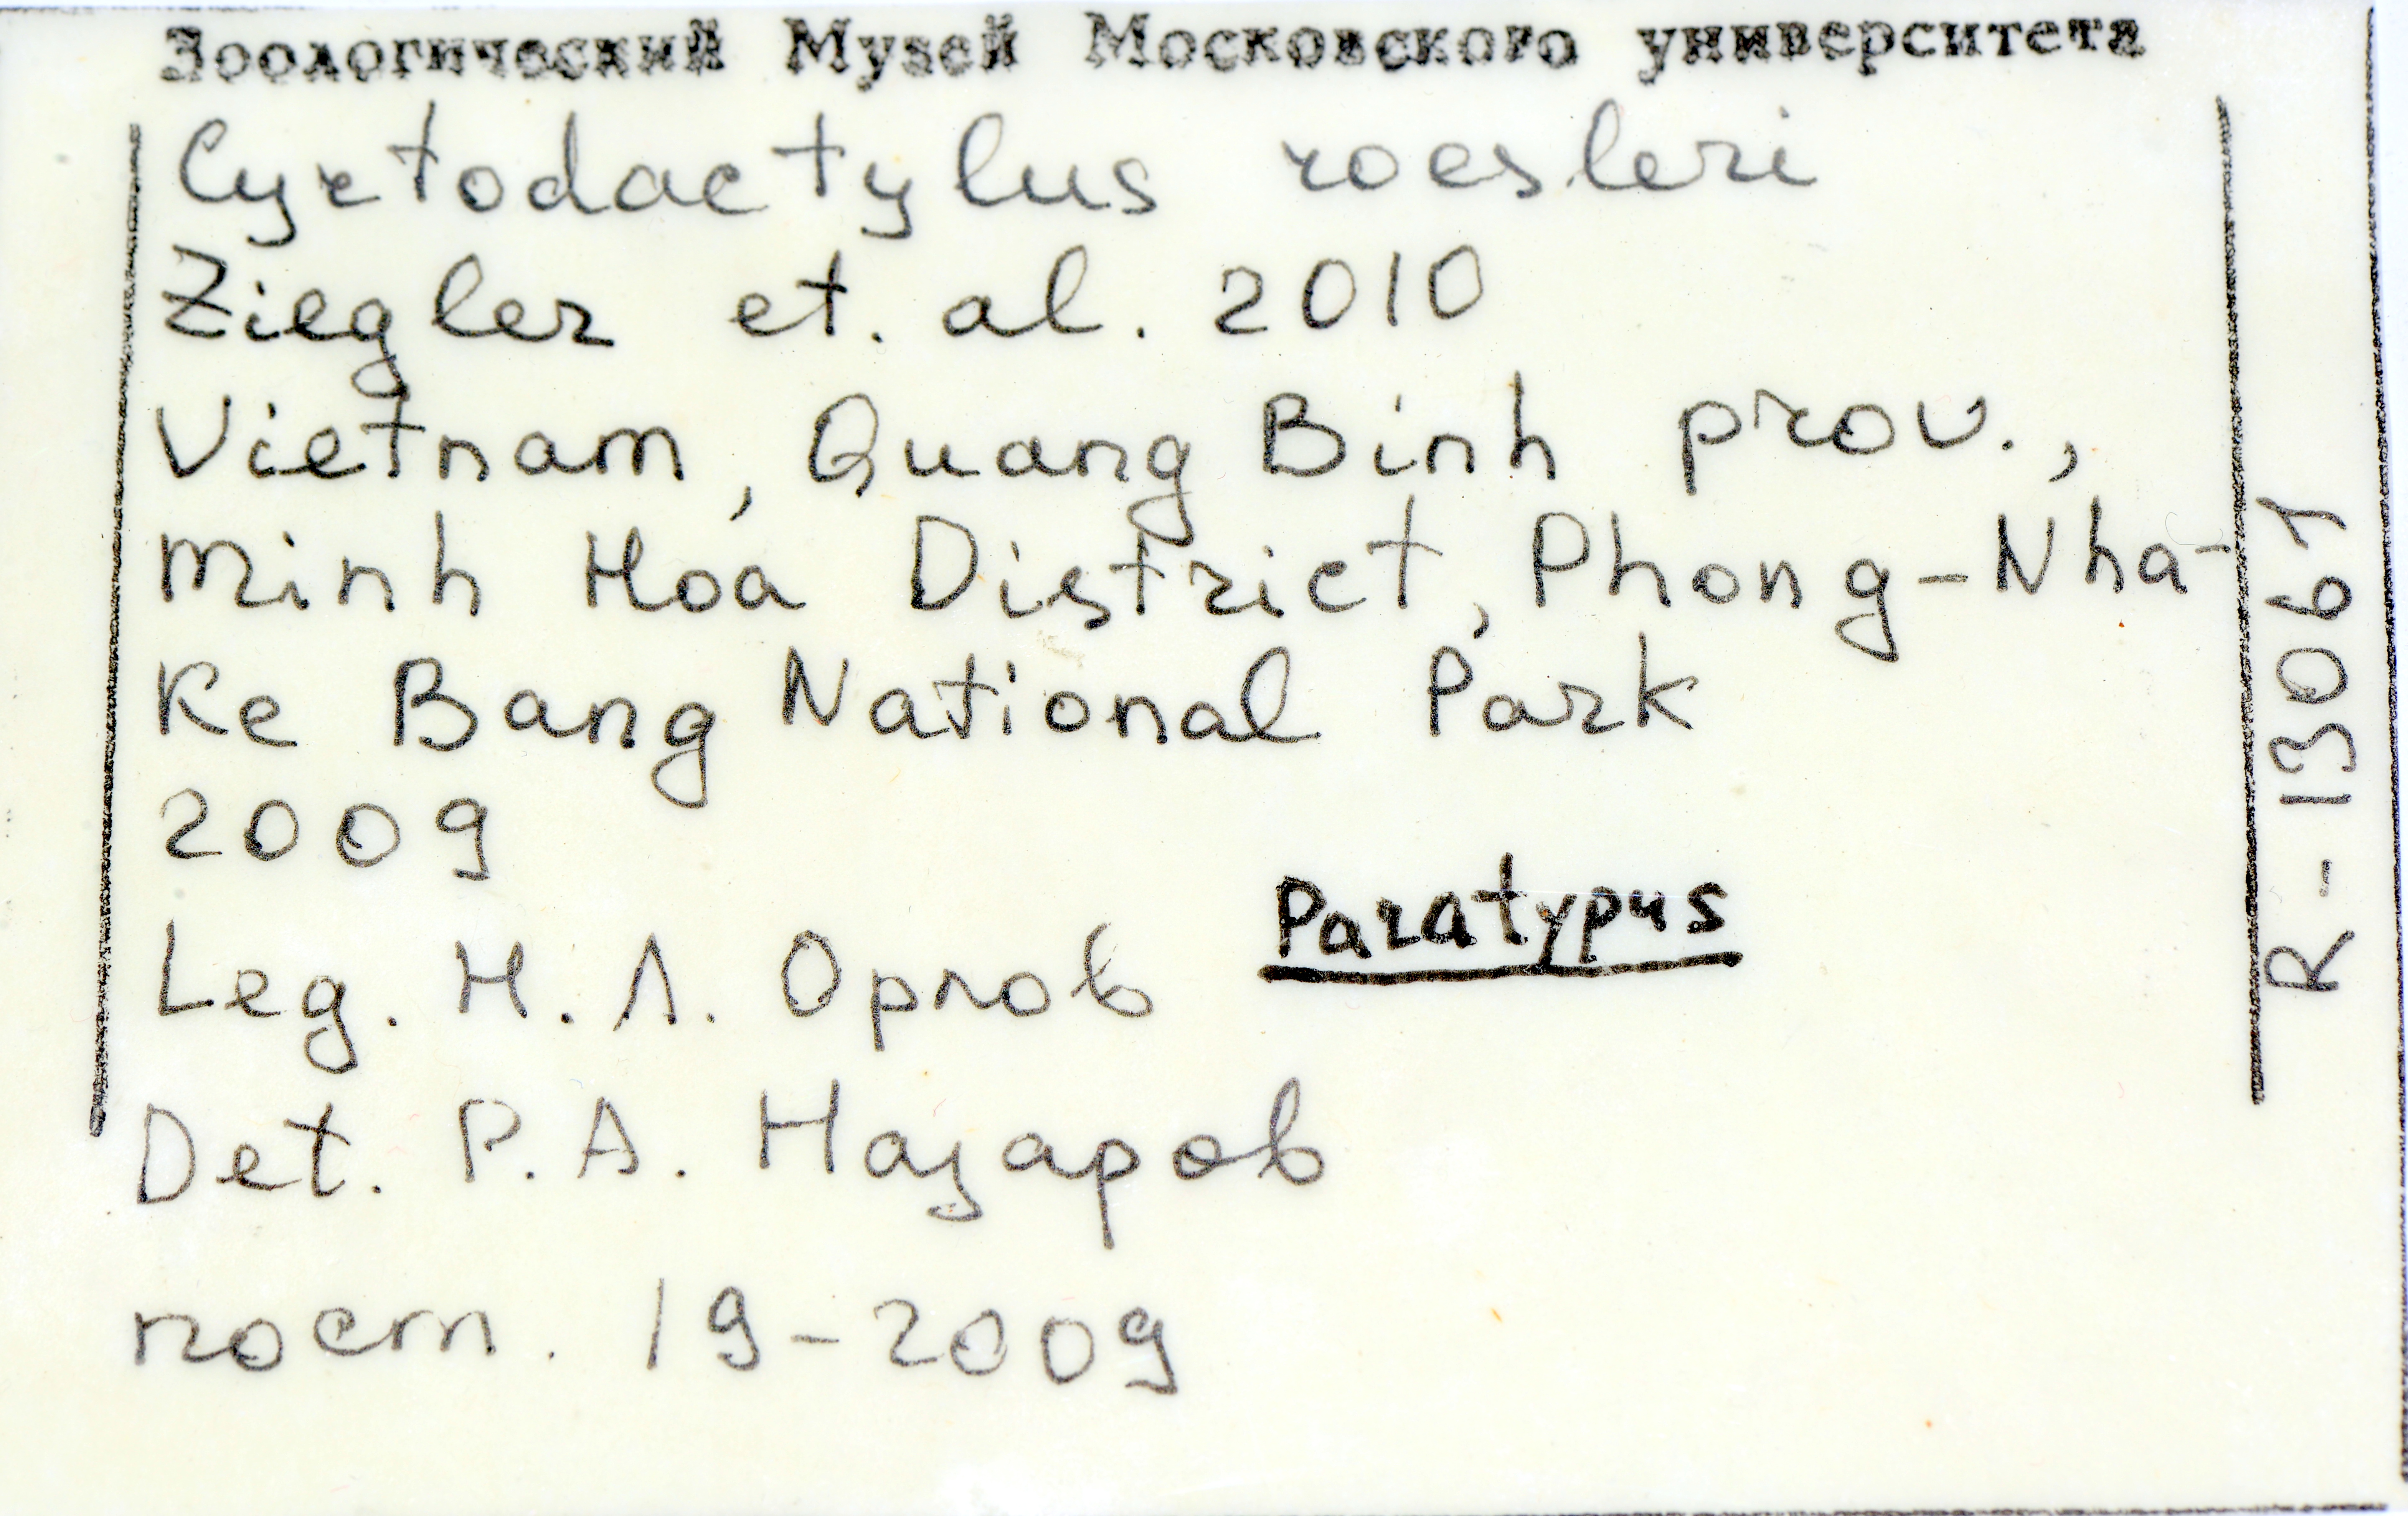 Зоологический Музей Московского университета
Cyrtodactylus roesleri
Ziegler et. al. 2010
Vietnam, Quang Binh prov.,
Minh Hoa District, Phong-Nha-
Ke Bang National Park
2009
Paratypus
Leg. Н. Л. Орлов
Det. Р. А. Назаров
пост. 19-2009
R-13061